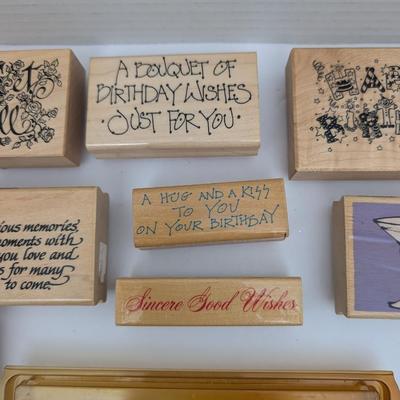 A BOUQUET OF
BIRTHDAY WISHES
· JUST FOR YOU ·
A HUG AND A KISS
TO YOU
ON YOUR BIRTHDAY
memories,
moments with
you love and
for many
to come.
Sincere Good Wishes